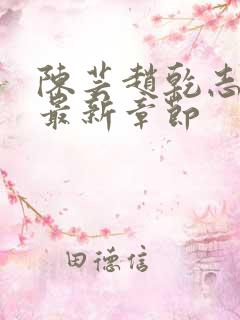 陳芸趙乾志
最新章節
田德信